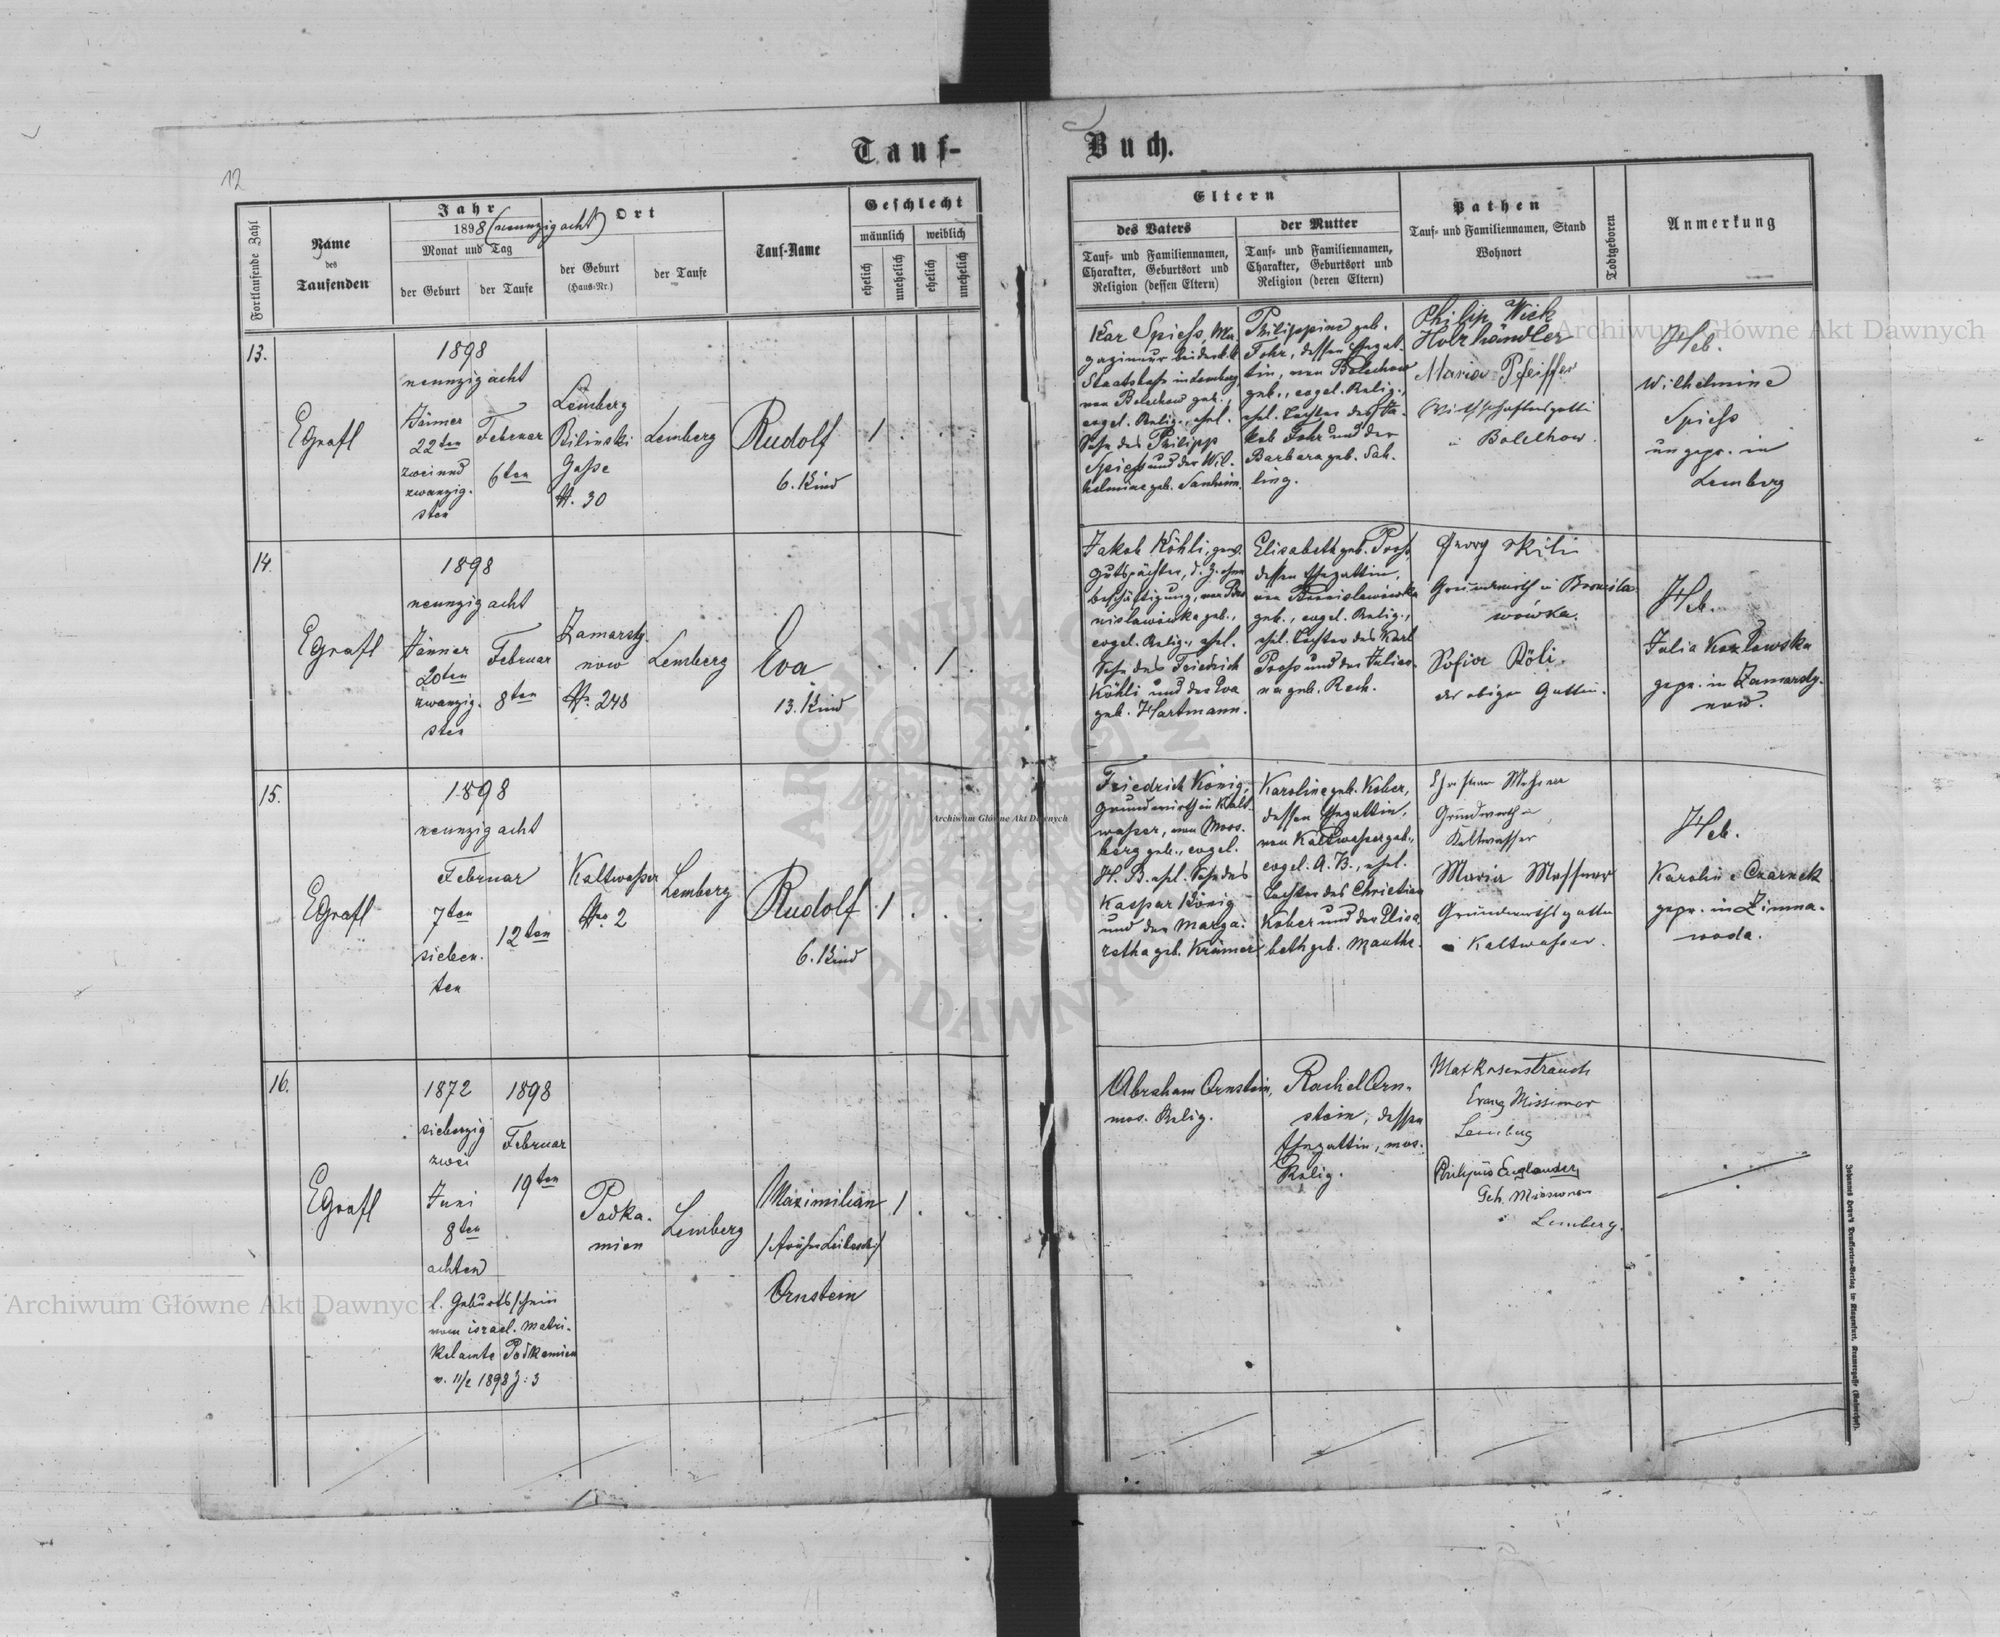 12
Tauf-
Buch.
Fortlaufende Zahl
Name
des
Taufenden
Jahr
1898 (neunzigacht)
Monat und Tag
der Geburt
der Taufe
Ort
der Geburt
(Haus-Nr.)
der Taufe
Tauf-Name
Geschlecht
männlich
weiblich
ehelich
unehelich
ehelich
unehelich
Eltern
des Vaters
Tauf- und Familiennamen,
Charakter, Geburtsort und
Religion (dessen Eltern)
der Mutter
Tauf- und Familiennamen,
Charakter, Geburtsort und
Religion (deren Eltern)
Pathen
Tauf- und Familiennamen, Stand
Wohnort
Todtgeboren
Anmerkung
13.
EGrafl
1898
neunzigacht
Jänner
22ten
zweiund
zwanzig-
sten
Februar
6ten
Lemberg
Bilinski
Gasse
N. 30
Lemberg
Rudolf
6. Kind
1
Spiess, Ma-
gazineur bei der k.k.
Staatsbahn in Lemberg,
von Bolechow geb.,
evgel. Relig., ehel.
Sohn des Philipp
Spiess und der Wil-
helmine geb.
Philippine geb.
Fohr, dessen Ehegat-
tin, von Bolechow
geb., evgel. Relig.,
ehel. Tochter des Ja-
kob Fohr und der
Barbara geb. Sah-
ling.
Philipp Wick
Holzhändler
Maria Pfeiffer
Wirthschaftersgattin
in Bolechow.
Heb.
Wilhelmine
Spiess
ungepr. in
Lemberg
14.
EGrafl
1898
neunzigacht
Jänner
20ten
zwanzig-
sten
Februar
8ten
Zamarsty-
now
No. 248
Lemberg
Eva
13. Kind
1
Jakob Köhli, gew.
Gutspächter, d. Z. ohne
Beschäftigung, von Bro-
nislawówka geb.,
evgel. Relig., ehel.
Sohn des Friedrich
Köhli und der Eva
geb. Hartmann.
Elisabeth geb.
dessen Ehegattin,
von Bronislawówka
geb., evgel. Relig.,
ehel. Tochter des Karl
und der Julia-
na geb. Rech.
Georg
Grundwirth in Bronisla-
wówka.
Sofia Röli.
des obigen Gattin.
Heb.
Julia Kozłowska
gepr. in Zamarsty-
now.
15.
EGrafl
1898
neunzigacht
Februar
7ten
sieben-
ten
12ten
Kaltwasser
Nro. 2
Lemberg
Rudolf
6. Kind
1
Friedrich König,
Grundwirth in Kalt-
wasser, von Mos-
berg geb., evgel.
H. B. ehel. Sohn des
Kaspar König
und der Marga-
retha geb. Krämer
Karoline geb. Kober,
dessen Ehegattin,
von Kaltwasser geb.,
evgel. A. B., ehel.
Tochter des Christian
Kober und der Elisa-
beth geb. Manthe.
Grundwirth in
Kaltwasser
Maria Messner
Grundwirthsgattin
in Kaltwasser.
Heb.
Karoline Czarnek
gepr. in Zimna-
woda.
16.
EGrafl
1872
siebenzig
zwei
Juni
8ten
achten
l. Geburtsschein
vom israel. Matri-
kelamte Podkamien
v. 11/2 1898 Z: 3
1898
Februar
19ten
Podka-
mien
Lemberg
Maximilian
Ornstein
1
Abraham Ornstein,
mos. Relig.
Rachel Orn-
stein, dessen
Ehegattin, mos.
Relig.
Max Rosenstrauch
Evang Missionar
Lemberg
Philippus Englander
Geh. Missionar
Lemberg.
Johannes Heyn's Drucksorten-Verlag in Klagenfurt, Kramergasse
Archiwum Główne Akt Dawnych
Archiwum Główne Akt Dawnych
Archiwum Główne Akt Dawnych